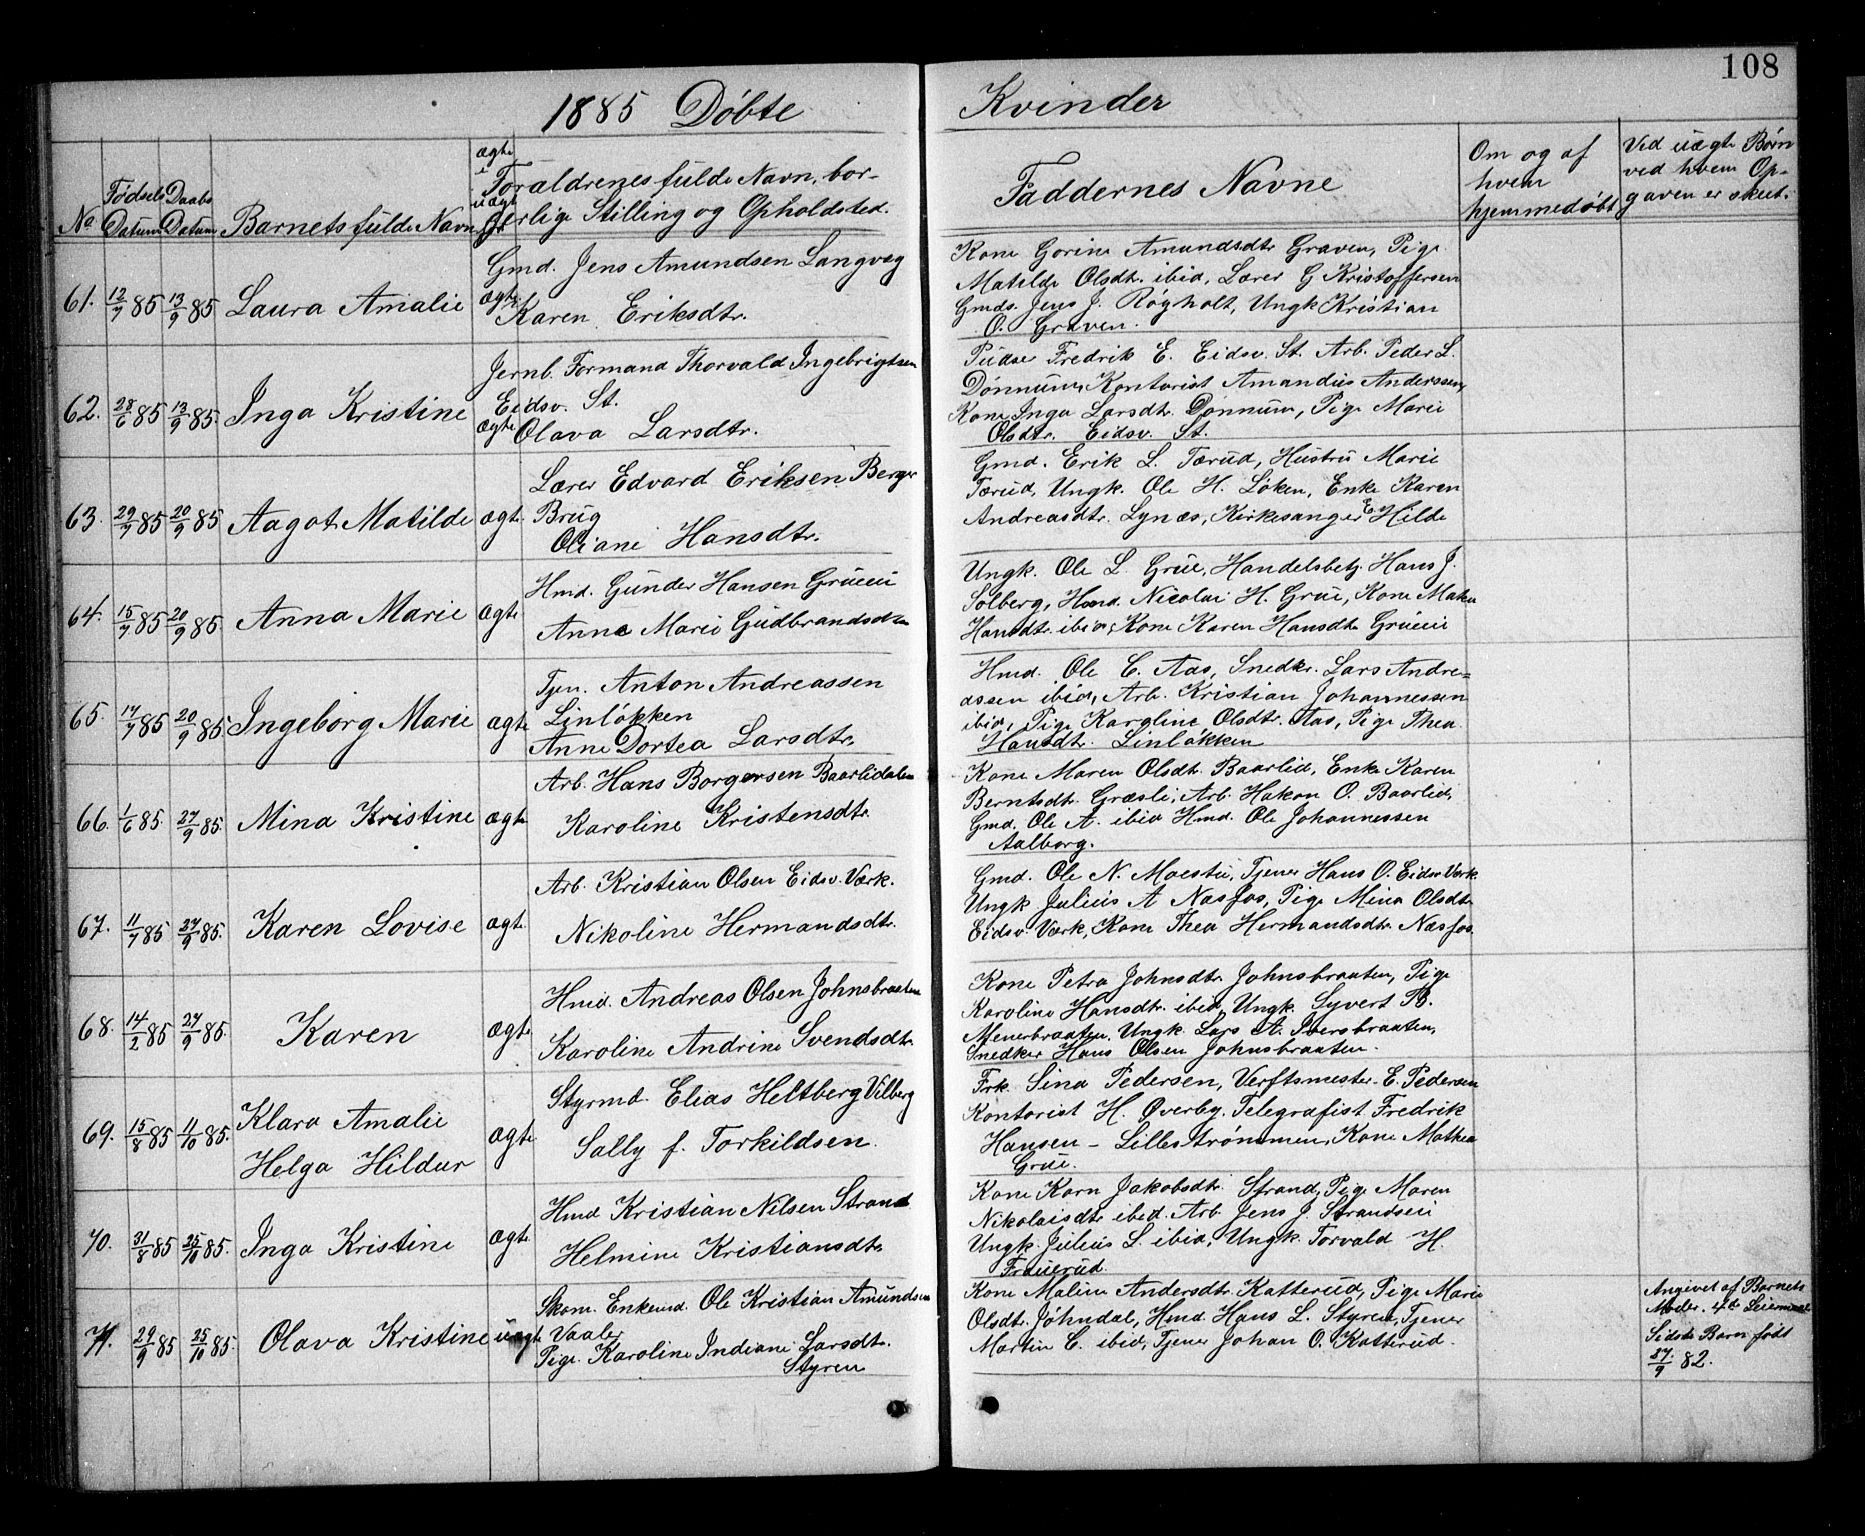 108
1885 Døbte Kvinder
No Fødsels Datum Daabs Datum Barnets fulde Navn ægte uægt Forældrenes fulde Navn, borgerlige Stilling og Opholdsted.
Faddernes Navne
Om og af hvem hjemmedøbt
Ved uægte Børn ved hvem Opgaven er skeet.
61. 12/7 85 13/9 85 Laura Amalie ægte
Gmd. Jens Amundsen Langvæg
Karen Eriksdtr.
Kone Gorine Amundsdtr Graven, Pige
Matilde Olsdtr. ibid, Lærer G Kristoffersen
Gmds. Jens J. Røgholt, Ungk Kristian
O. Graven.
62. 28/6 85 13/9 85. Inga Kristine ægte
Jernb. Formand Thorvald Ingebrigtsen
Eidsv. St.
Olava Larsdtr.
Pudser Fredrik E. Eidsv. St. Arb. Peder L.
Dønnum, Kontorist Amandus Anderssen,
Kone Inga Larsdtr. Dønnum, Pige Marie
Olsdtr. Eidsv. St.
63. 29/7 85 20/9 85 Aagot Matilde ægte
Lærer Edvard Eriksen Berger
Brug
Oliane Hansdtr.
Gmd. Erik L. Tærud, Hustru Marie
Tærud, Ungk. Ole H. Løken, Enke Karen
Andreasdtr. Lynæs, Kirkesanger E Hilde
64. 15/7 85 20/9 85 Anna Marie ægte
Hmd. Gunder Hansen Grueei
Anne Marie Gudbrandsdtr
Ungk. Ole L. Grue, Handelsbetj. Hans J.
Solberg, Hmd. Nicolai H. Grue, Kone Maren
Hansdtr. ibid, Kone Karen Hansdtr Grueei
65. 17/7 85 20/9 85 Ingeborg Marie ægte
Tjen. Anton Andreassen
Linløkken
Anne Dortea Larsdtr.
Hmd. Ole C. Aas, Snedkr. Lars Andre-
assen ibid, Arb. Kristian Johannessen
ibid, Pige Karoline Olsdtr. Aas, Pige Thea
Hansdtr. Linløkken
66. 1/6 85. 27/9 85. Mina Kristine ægte
Arb. Hans Borgersen Baarlidalen
Karoline Kristensdtr.
Kone Maren Olsdt. Baarlid, Enke Karen
Berntsdtr. Græsli, Arb. Hakon O. Baarlid,
Gmd. Ole A. ibid Hmd. Ole Johannessen
Aalborg.
67. 11/7 85 27/9 85. Karen Lovise ægte
Arb. Kristian Olsen Eidsv. Værk.
Nikoline Hermandsdtr.
Gmd. Ole N. Moestu, Tjener Hans O. Eidsv Værk
Ungk Julius A Næsfos, Pige Mina Olsdtr
Eidsv. Værk, Kone Thea Hermandsdtr. Næsfos.
68. 14/2 85 27/9 85. Karen ægte
Hmd. Andreas Olsen Johnsbraaten
Karoline Andrine Svendsdtr.
Kone Petra Johnsdtr. Johnsbraaten, Pige
Karoline Hansdtr. ibid, Ungk. Syvert B.
Menerbraaten, Ungk Lars A. Iversbraaten,
Snedker Hans Olsen Johnsbraaten.
69. 15/8 85 11/10 85. Klara Amalie
Helga Hildur ægte
Styrmd. Elias Heltberg Vilberg
Sally f. Torkildsen.
Frk. Sina Pedersen, Verftsmester E. Pedersen
Kontorist H. Øverby. Telegrafist Fredrik
Hansen - Lillestrømmen, Kone Mathea
Grue.
70. 31/8 85 25/10 85. Inga Kristine ægte
Hmd Kristian Nilsen Strand
Helmine Kristiansdtr.
Kone Karn Jakobsdtr. Strand, Pige Maren
Nikolaisdtr ibid. Arb. Jens J. Strandsen
Ungk. Julius L. ibid, Ungk. Torvald H.
Fruerud.
71. 29/9 85 25/10 85. Olava Kristine uægte
Skom. Enkemd. Ole Kristian Amundsen
Vaaler
Pige Karoline Indiane Larsdtr.
Styren
Kone Maline Andersdtr. Katterud, Pige Marie
Olsdtr. Jøhndal, Hmd. Hans L. Styren, Tjener
Martin C. ibid, Tjener Johan O. Katterud.
Angivet af Barnets
Moder. 4de Leiermaal
Sidste Barn født
27/9 82.